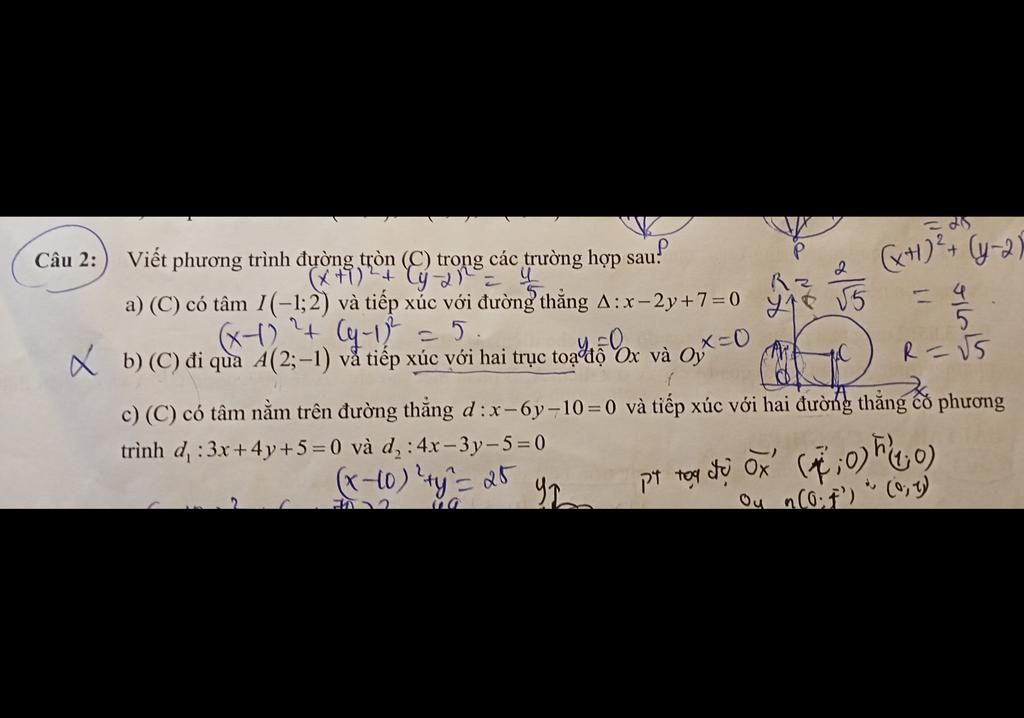 = 25
P
P
Câu 2: Viết phương trình đường tròn (C) trong các trường hợp sau:
(x+1)² + (y-2)² = 4/5
R = 2/√5
(x+1)² + (y-2)²
= 4/5
a) (C) có tâm I(-1;2) và tiếp xúc với đường thẳng Δ: x-2y+7=0
(x-1)² + (y-1)² = 5
y=0
x=0
R = √5
y
C
A
x
b) (C) đi qua A(2;-1) và tiếp xúc với hai trục toạ độ Ox và Oy
c) (C) có tâm nằm trên đường thẳng d: x-6y-10=0 và tiếp xúc với hai đường thẳng có phương
trình d₁: 3x+4y+5=0 và d₂: 4x-3y-5=0
(x-10)² + y² = 25
y
PT toạ độ Ox